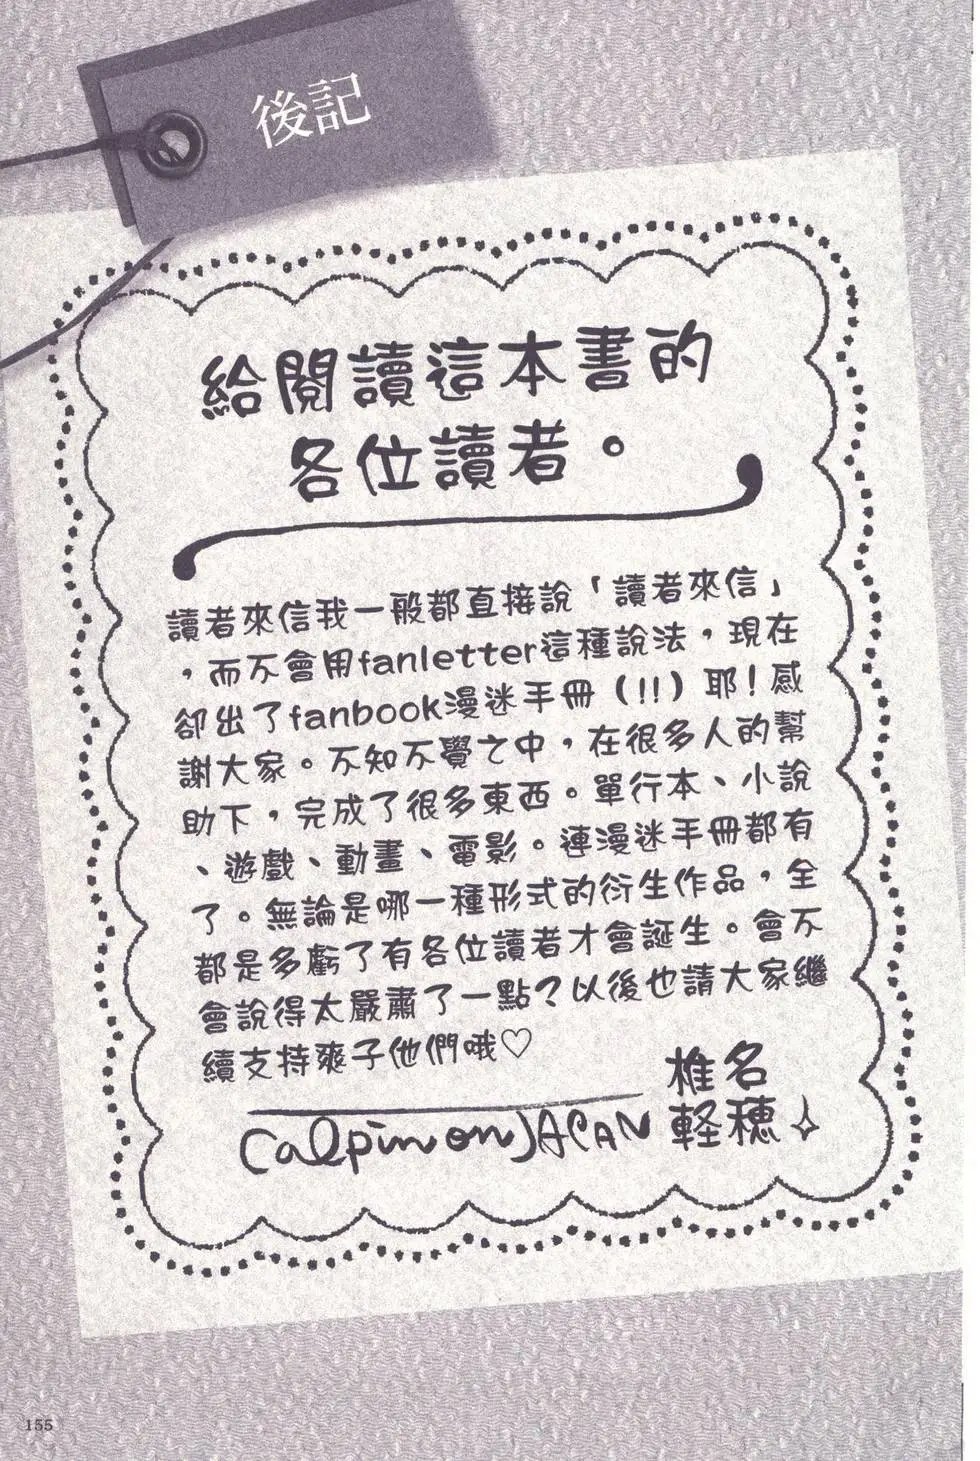 後記
給閱讀這本書的
各位讀者。
讀者來信我一般都直接說「讀者來信」
，而不會用fanletter這種說法，現在
卻出了fanbook漫迷手冊（!!）耶！感
謝大家。不知不覺之中，在很多人的幫
助下，完成了很多東西。單行本、小說
、遊戲、動畫、電影。連漫迷手冊都有
了。無論是哪一種形式的衍生作品，全
都是多虧了有各位讀者才會誕生。會不
會說得太嚴肅了一點？以後也請大家繼
續支持爽子他們哦♡
椎名
軽穗
Calpin on JAPAN
155